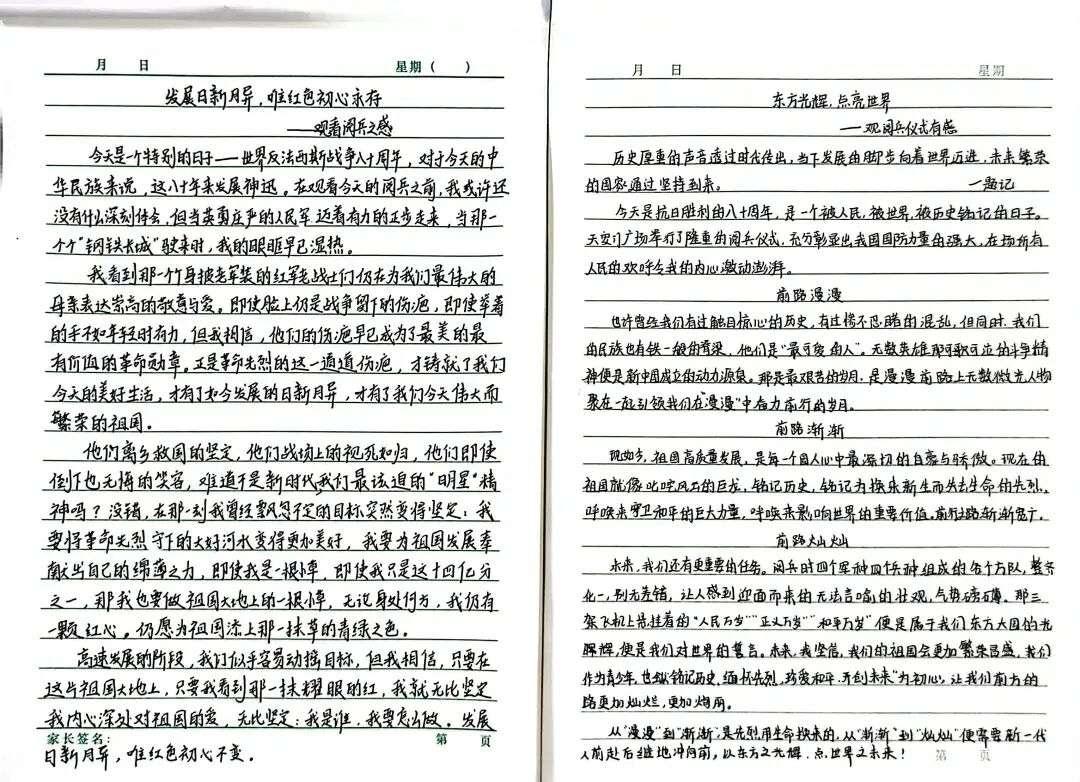 月 日 星期（ ）
发展日新月异，唯红色初心永存
——观看阅兵之感
今天是一个特别的日子——世界反法西斯战争八十周年，对于今天的中
华民族来说，这八十年来发展神迅。在观看今天的阅兵之前，我或许还
没有什么深刻体会，但当英勇庄严的人民军迈着有力的正步走来，当那一
个个“钢铁长城”驶来时，我的眼眶早已湿热。
我看到那一个个身披老军装的红军老战士们仍在为我们最伟大的
母亲表达崇高的敬意与爱。即使脸上仍是战争留下的伤疤，即使举着
的手不如年轻时有力，但我相信，他们的伤疤早已成为了最美的最
有价值的革命勋章。正是革命先烈的这一道道伤疤，才铸就了我们
今天的美好生活，才有了如今发展的日新月异，才有了我们今天伟大而
繁荣的祖国。
他们离乡救国的坚定，他们战场上的视死如归，他们即使
倒下也无悔的笑容，难道不是新时代我们最该追的“明星”精
神吗？没错，在那一刻我曾经飘忽不定的目标突然变得坚定：我
要将革命先烈守下的大好河水变得更加美好，我要为祖国发展奉
献出自己的绵薄之力，即使我是一根小草，即使我只是这十四亿分
之一，那我也要做祖国大地上的一根小草，无论身处何方，我仍有
一颗红心。仍愿为祖国添上那一抹草的青绿之色。
高速发展的阶段，我们似乎容易动摇目标，但我相信，只要在
这片祖国大地上，只要我看到那一抹耀眼的红，我就无比坚定
我内心深处对祖国的爱，无比坚定：我是谁，我要怎么做。发展
家长签名： 第 页
日新月异，唯红色初心不变。
月 日 星期
东方光辉，点亮世界
——观阅兵仪式有感
历史厚重的声音透过时代传出，当下发展由脚步向着世界迈进，未来繁荣
的国家通过坚持到来。 —题记
今天是抗日胜利的八十周年，是一个被人民，被世界，被历史铭记的日子。
天安门广场举行了隆重的阅兵仪式，充分彰显出我国国防力量的强大，在场所有
人民的欢呼令我的内心激动澎湃。
前路漫漫
也许曾经我们有过触目惊心的历史，有过惨不忍睹的混乱，但同时，我们
的民族也有铁一般的脊梁，他们是“最可爱的人”。无数英雄那可歌可泣的斗争精
神便是新中国成立的动力源泉。那是最艰苦的岁月，是漫漫前路上无数微光人物
聚在一起引领我们在“漫漫”中奋力前行的岁月。
前路渐渐
现如今，祖国高质量发展，是每个国人心中最深切的自豪与骄傲。现在的
祖国就像叱咤风云的巨龙，铭记历史，铭记为换来新生而失去生命的先烈，
呼唤来守卫和平的巨大力量，呼唤来影响世界的重要价值。前行之路渐渐宽广。
前路灿灿
未来，我们还有更重要的任务。阅兵时四个军种四个兵种组成的各个方队，整齐
化一，别无差错，让人感到迎面而来的无法言喻的壮观，气势磅礴。那三
架飞机上悬挂着的“人民万岁”“正义万岁”“和平万岁”便是属于我们东方大国的光
辉，便是我们对世界的誓言。未来，我坚信，我们的祖国会更加繁荣昌盛，我们
作为青少年，也纵铭记历史，缅怀先烈，珍爱和平，开创未来“为初心，让我们前方的
路更加灿烂，更加绚丽。
从“漫漫”到“渐渐”是先烈用生命换来的，从“渐渐”到“灿灿”便需要新一代
人前赴后继地冲向前，以东方之光辉，点世界之未来！
第 页